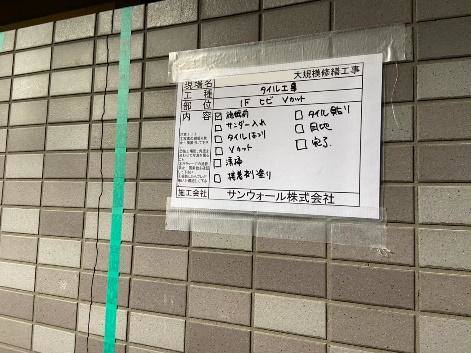 現場名 大規模修繕工事
工種 タイル工事
部位 1F ヒビ Vカット
内容 ☑ 施工前 □ タイル貼り
□ サンダー入れ □ 目地
□ タイルはつり □ 完了
□ Vカット
□ 清掃
□ 接着剤塗り
施工会社 サンウォール株式会社